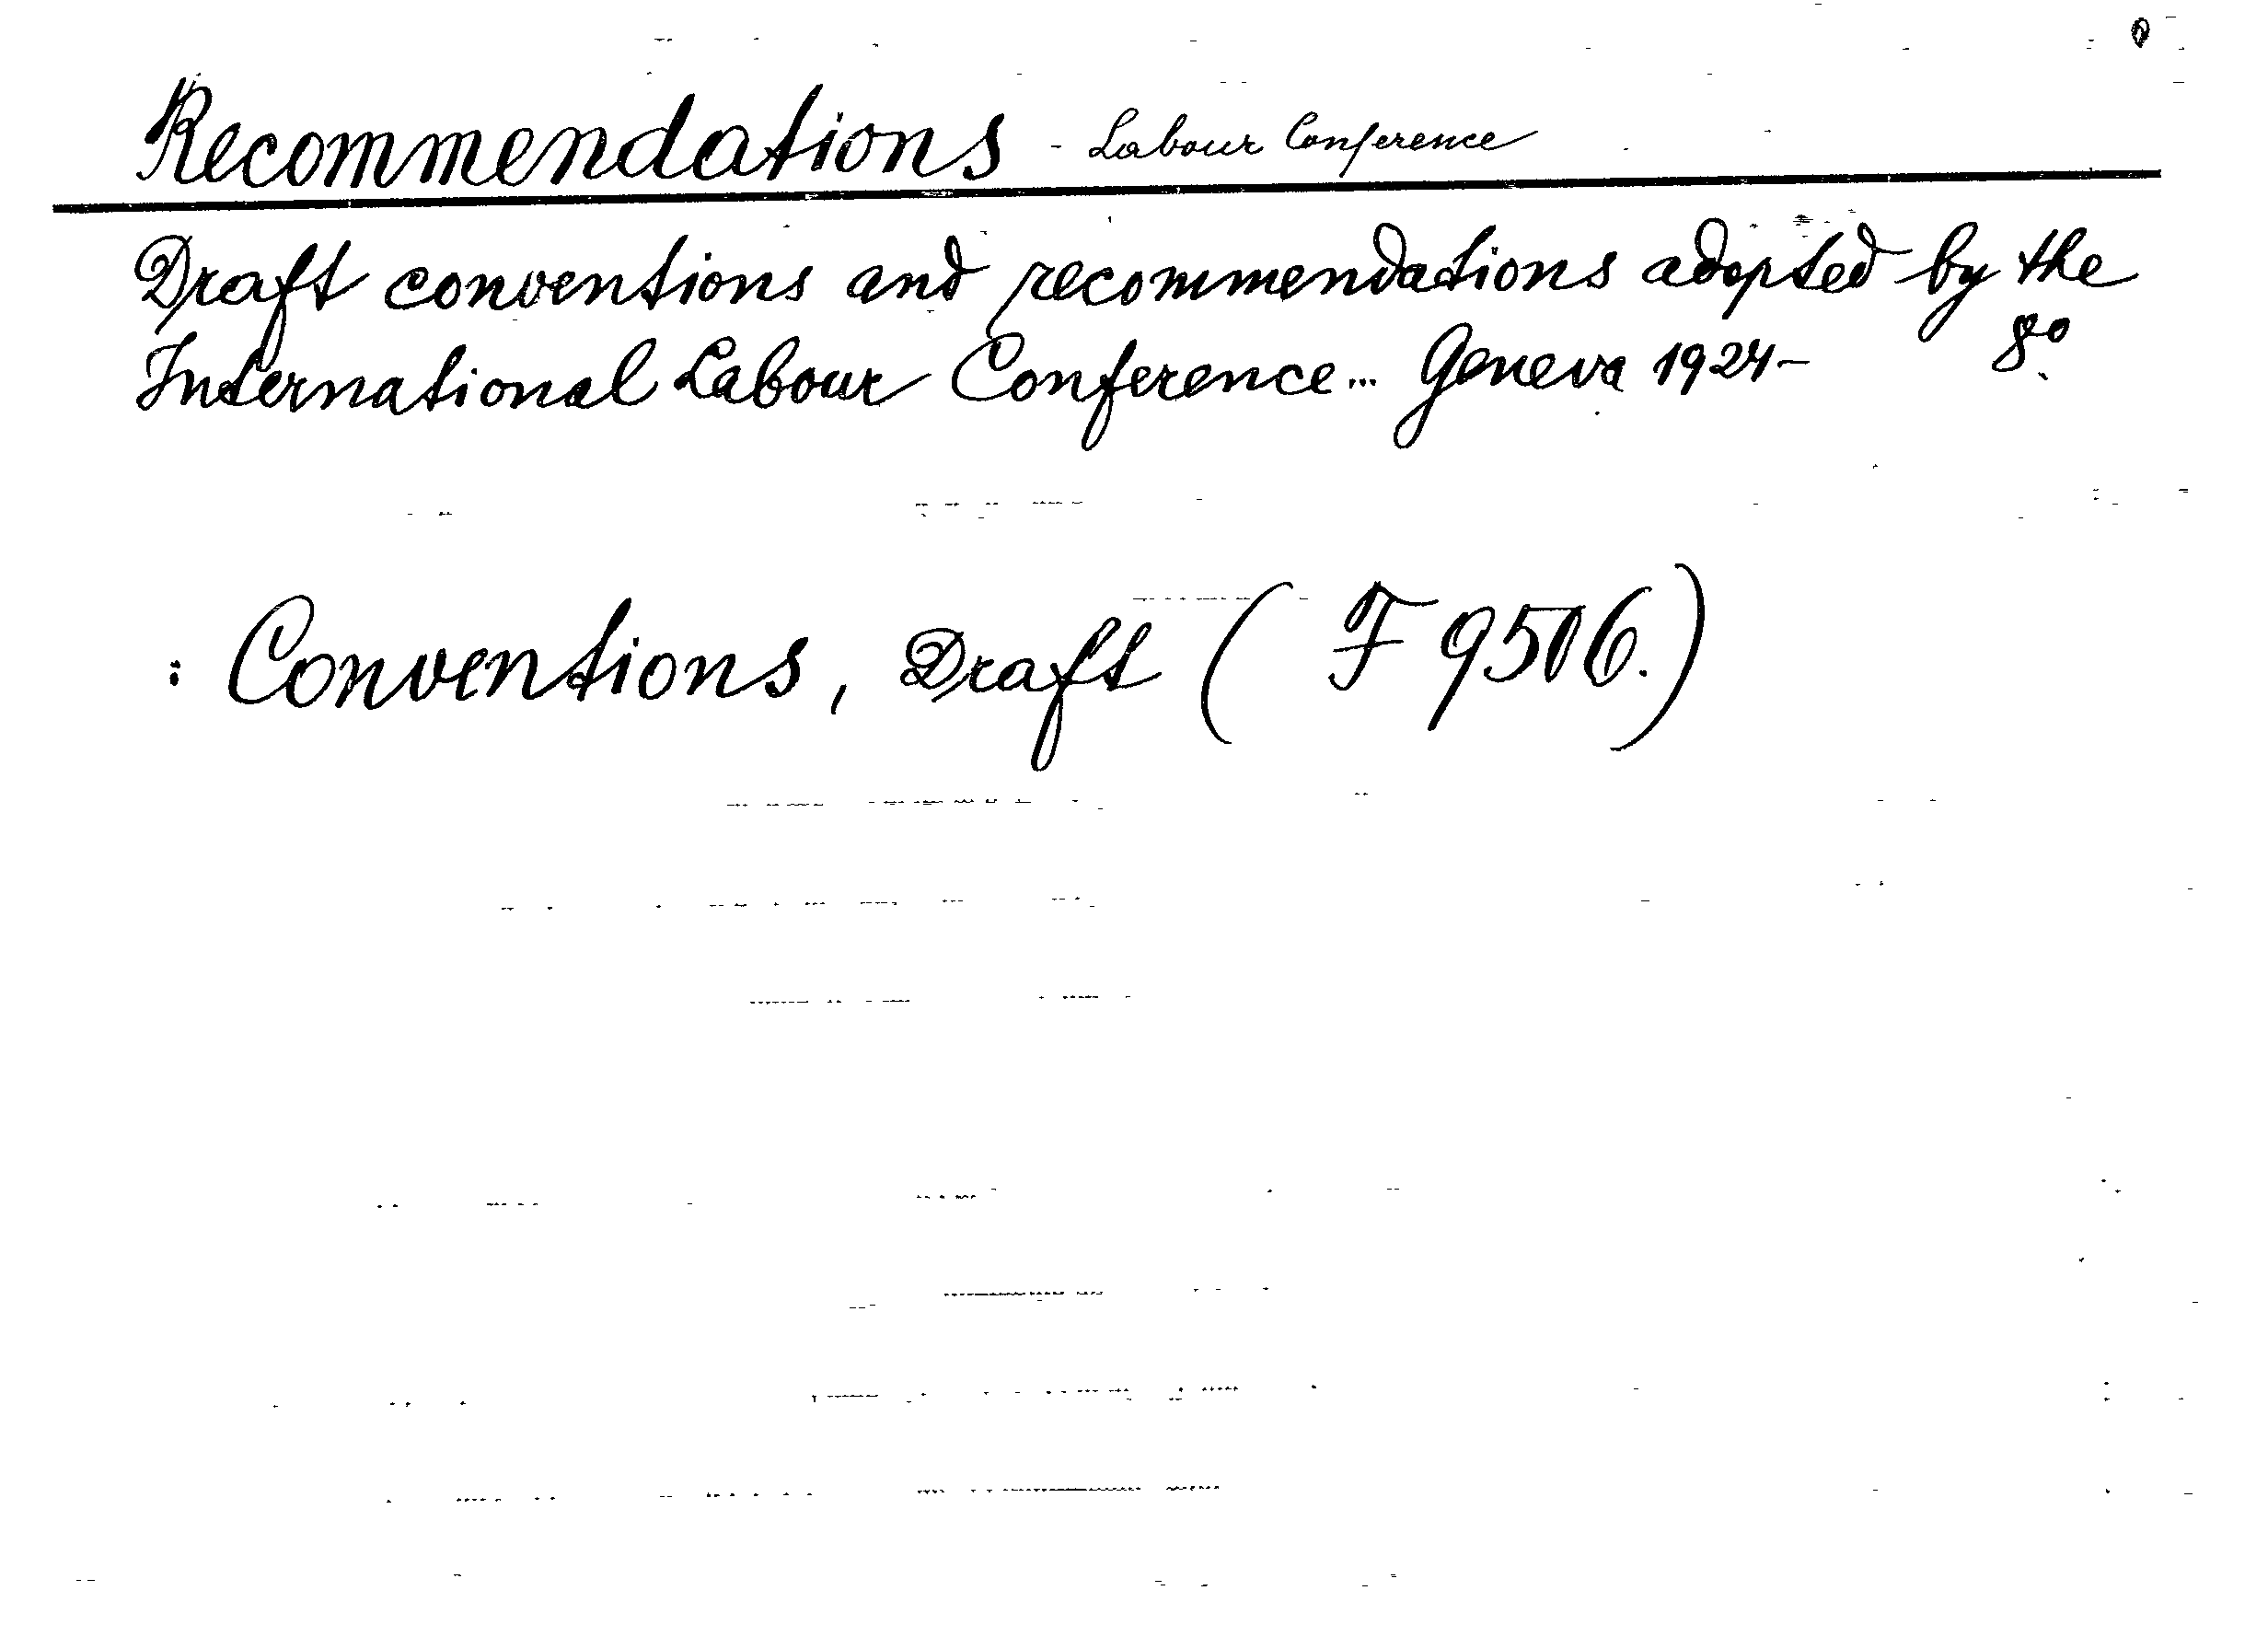 Recommendations - Labour Conference
Draft conventions and recommendations adopted by the
International Labour Conference... Geneva 1924- 8º.
: Conventions, Draft ( F 9506.)